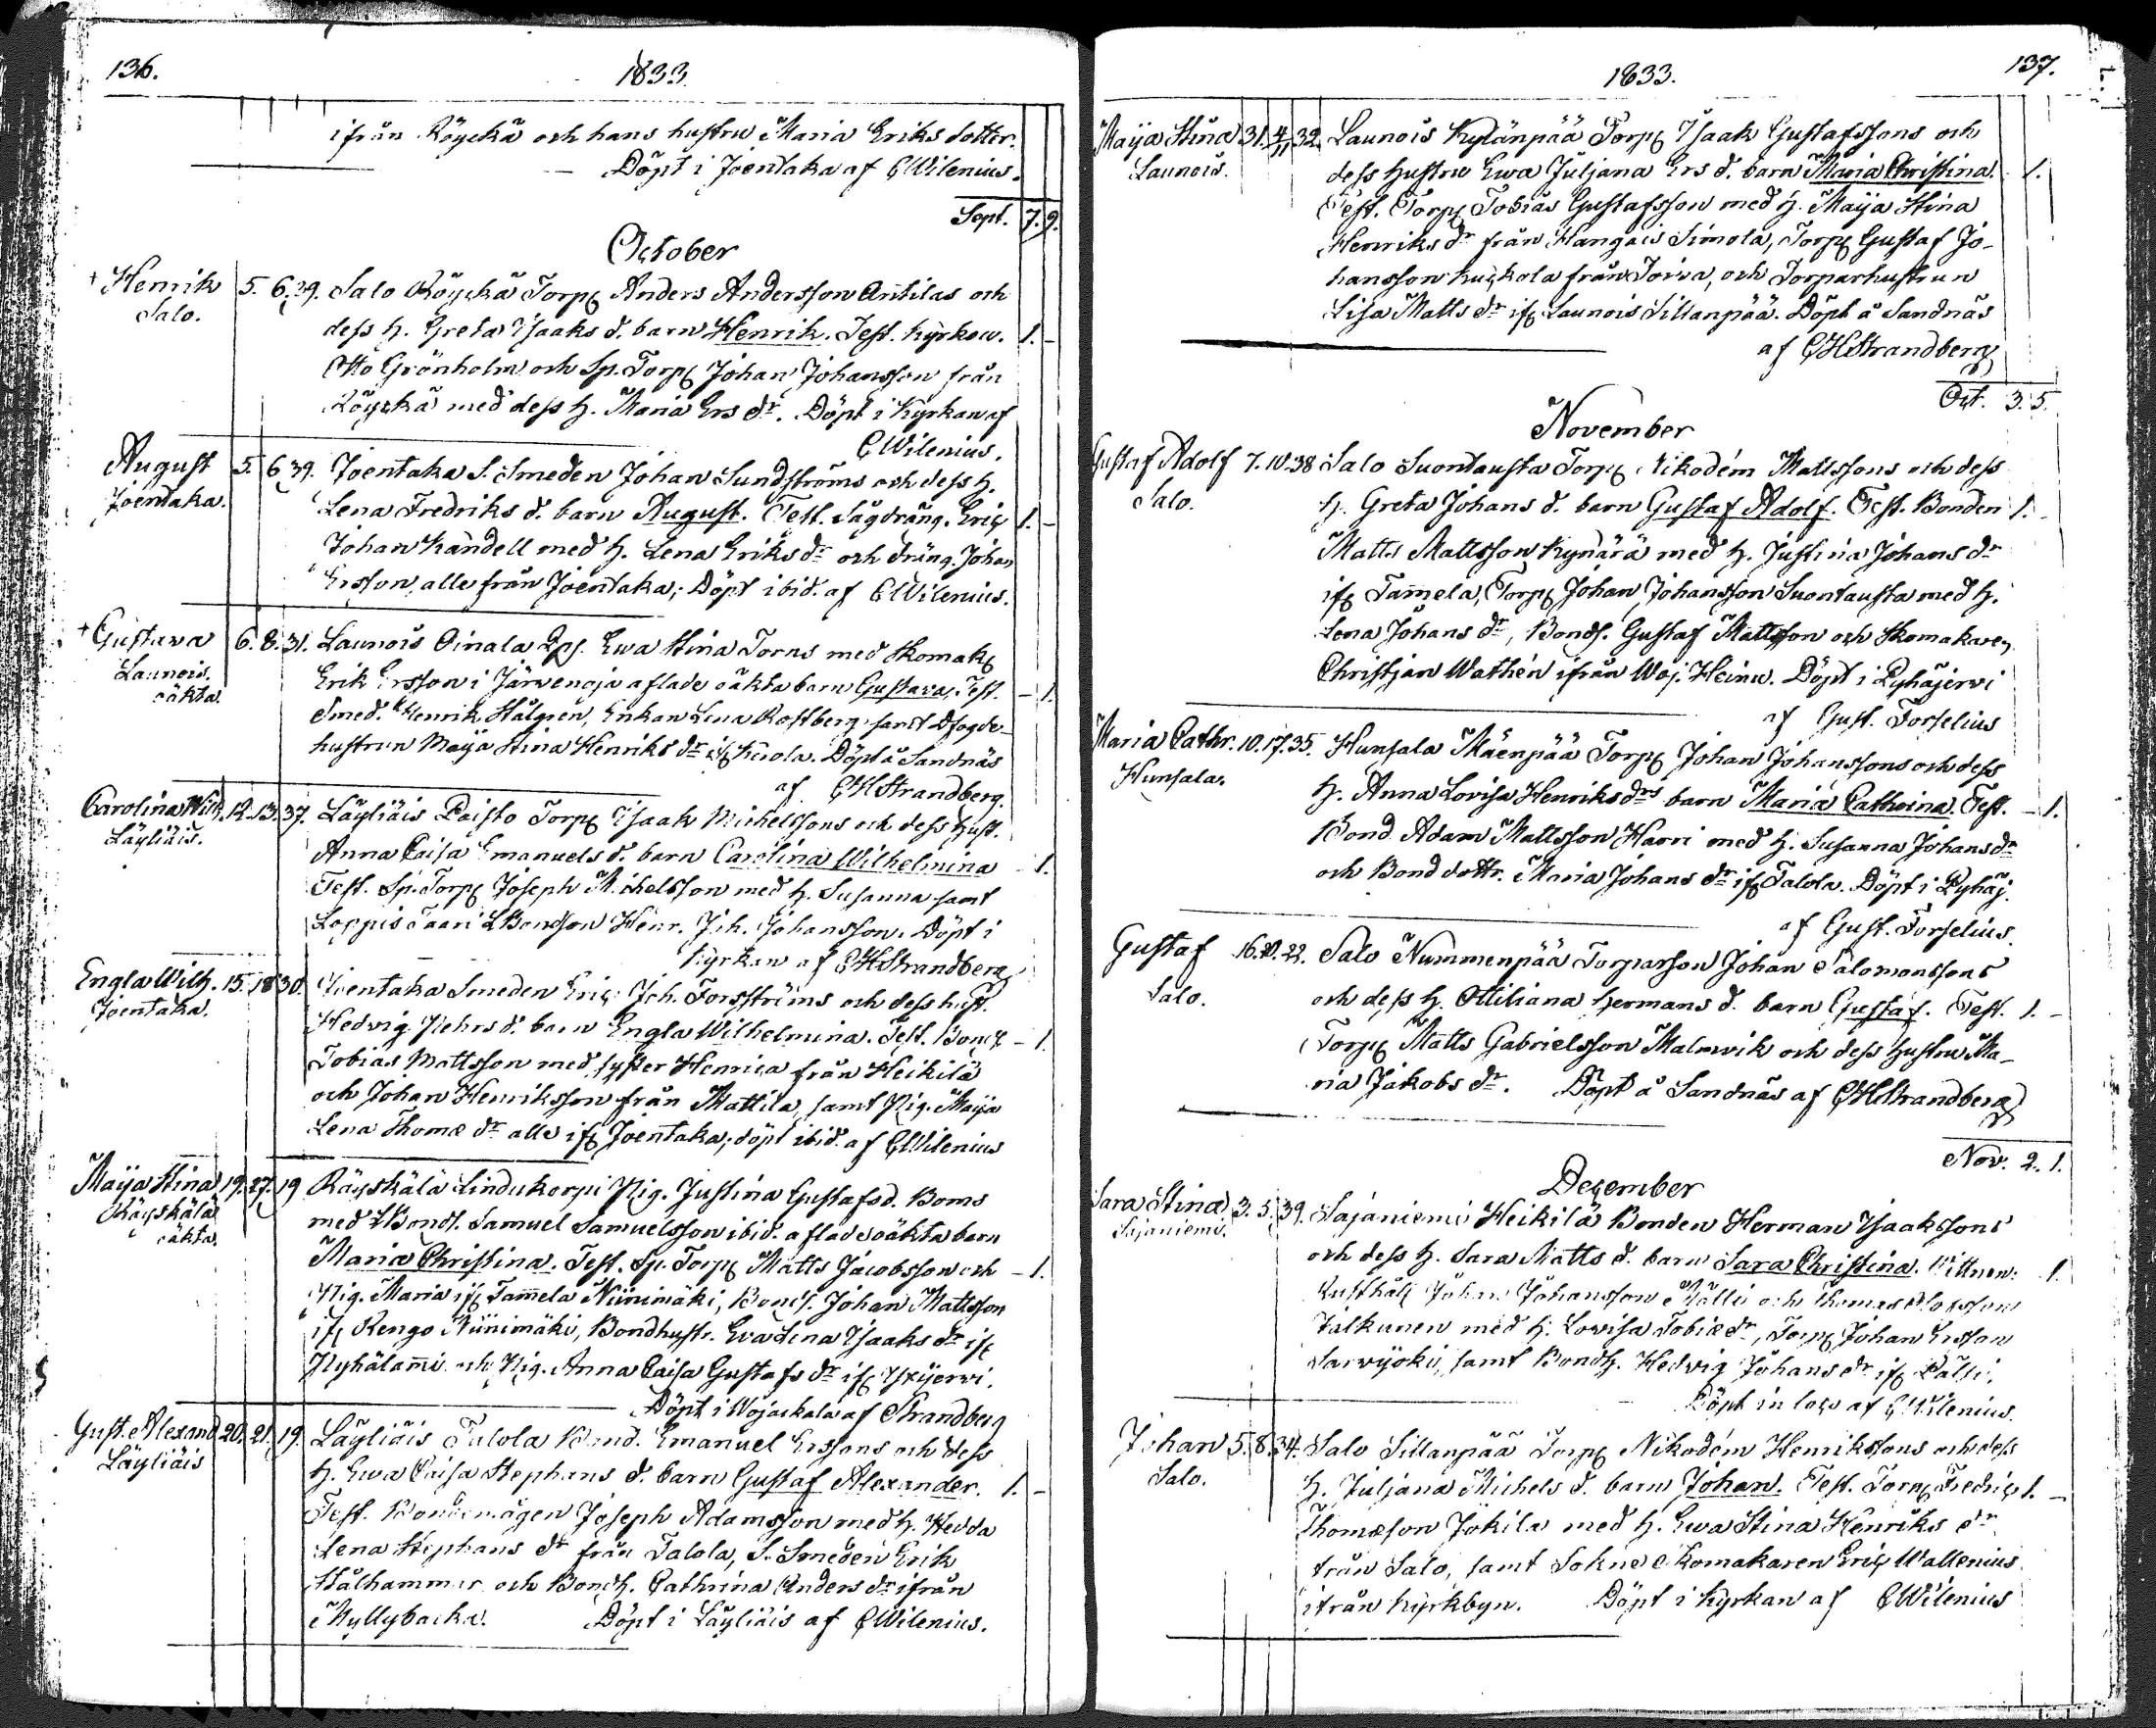 136.
1833.
ifrån Röyckä och hans hustru Maria Eriks dotter.
Döpt i Joentaka af CWilenius.
Sept. 7. 9.
October
+ Henrik 5. 6. 29. Salo Röyckä Torp Anders Andersson Anttilas och
Salo. dess h. Greta Isaaks d. barn Henrik. Test. Kyrkow. 1. -
Otto Grönholm och Sp. Torp Johan Johansson från
Röyckä med dess h. Maria Ers dr. Döpt i Kyrkan af
CWilenius.
August 5. 6. 39. Joentaka S. Smeden Johan Sundströms och dess h.
Joentaka. Lena Fredriks d. barn August. Test. Sågdräng. Eric 1. -
Johan Kandell med h. Lena Eriks dr och dräng. Johan
Ersson, alle från Joentaka; Döpt ibid. af CWilenius.
+ Gustava 6. 8. 31. Launois Oinala Ewa Stina Torns med Skomak
Launois. Erik Ersson i Järvenoja aflade oäkta barn Gustava. Test. - 1.
oäkta. Smed. Henrik Hälgren, Enkan Lena Rostberg samt Dfogde-
hustrun Maija Stina Henriks dr if Döpt å Sandnäs
af CHStrandberg.
Carolina Wilh. 12. 13. 37. Läyliäis Paisto Torp Isaak Michelssons och dess hust.
Läyliäis. Anna Caisa Emanuels d. barn Carolina Wilhelmina - 1.
Test. Sp. Torp Joseph Michelsson med h. Susanna samt
Loppis Saari Bondson Henr. Joh. Johansson. Döpt i
Kyrkan af CHStrandberg
Engla Wilh. 15. 18. 30. Joentaka Smeden Eric Joh. Forsströms och dess hust.
Joentaka. Hedvig Jehrs d. barn Engla Wilhelmina. Test. Bond - 1.
Tobias Mattsson med syster Henrica från Heikilä
och Johan Henriksson från Mattila, samt Pig. Maija
Lena Thomæ dr alle if Joentaka; döpt ibid. af CWilenius
Maija Stina 19. 27. 19 Räyskälä Lindukorpi Pig. Justina Gustafsd. Boms
Räyskälä med Bonds. Samuel Samuelsson ibid. aflade oäkta barn
oäkta. Maria Christina. Test. Sp. Torp Matts Jacobsson och - 1.
Pig. Maria if Tammela Niinimäki, Bonds. Johan Mattsson
if Rengo Niinimäki, Bondhustr. Eva Lena Isaaks dr if
Pyhälammi och Pig. Anna Caisa Gustafs dr if Yxijerwi.
Döpt i Wojackala af Strandberg
Gust. Alexand. 20. 21. 19. Läyliäis Talola Bond. Emanuel Erssons och dess
Läyliäis h. Ewa Caisa Stephans d. barn Gustaf Alexander. 1. -
Test. Bondemågen Joseph Adamsson med h. Hedda
Lena Stephans dr från Talola, S. Smeden Erik
Stålhammar och Bondh. Cathrina Anders dr ifrån
Myllybacka. Döpt i Läyliäis af CWilenius.
1833.
137.
Maija Stina 31. 4/11 32. Launois Kylänpää Torp Isaak Gustafssons och
Launois. dess hustru Ewa Juljana Ers d. barn Maria Christina. 1.
Test. Torp Tobias Gustafsson med h. Maija Stina
Henriks dr från Hangais Simola, Torp Gustaf Jo-
hansson Kuckola från Joiva, och Torparhustrun
Lisa Matts dr if Launois Sillanpää. Döpt å Sandnäs
af CHStrandberg
Oct. 3. 5.
November
Gustaf Adolf 7. 10. 38 Salo Suontausta Torp Nikodém Mattssons och dess
Salo. h. Greta Johans d. barn Gustaf Adolf. Test. Bonden 1. -
Matts Mattsson Kynärä med h. Justina Johans dr
if Tamela, Torp Johan Johansson Suontausta med h.
Lena Johans dr, Bonds. Gustaf Mattsson och Skomakaren
Christjan Wathén ifrån Woj. Heinu. Döpt i Pyhäjerwi
af Gust. Forselius
Maria Cathr. 10. 17. 35. Hunsala Mäenpää Torp Johan Johanssons och dess
Hunsala. h. Anna Lovisa Henriks drs barn Maria Cathrina. Test. - 1.
Bond Adam Mattsson Harri med h. Susanna Johans dr
och Bond dottr. Maria Johans dr if Talola. Döpt i Pyhäj.
af Gust. Forselius.
Gustaf 16. 20. 22. Salo Nummenpää Torparson Johan Salomonssons
Salo. och dess h. Ottiliana Hermans d. barn Gustaf. Test. 1. -
Torp Matts Gabrielsson Malmwik och dess hustru Ma-
ria Jakobs dr. Döpt å Sandnäs af CHStrandberg
Nov. 2. 1.
December
Sara Stina 3. 5. 39. Sajaniemi Heikilä Bonden Herman Isaakssons
Sajaniemi. och dess h. Sara Matts d. barn Sara Christina. Wittnen: 1.
Rusthåll Johan Johansson Pälli och Thomas
Talkunen med h. Lovisa Tobiæ dr, Torp Johan Ersson
Sarvijoki, samt Bondh. Hedvig Johans dr if Pälli.
Döpt in loco af CWilenius.
Johan 5. 8. 34. Salo Sillanpää Torp Nikodém Henrikssons och dess
Salo. h. Juljana Michels d. barn Johan. Test. Torp Fredric 1. -
Thomæson Jokila med h. Ewa Stina Henriks dr
från Salo, samt Sokne Skomakaren Eric Wallenius
ifrån Kyrkbyn. Döpt i Kyrkan af CWilenius